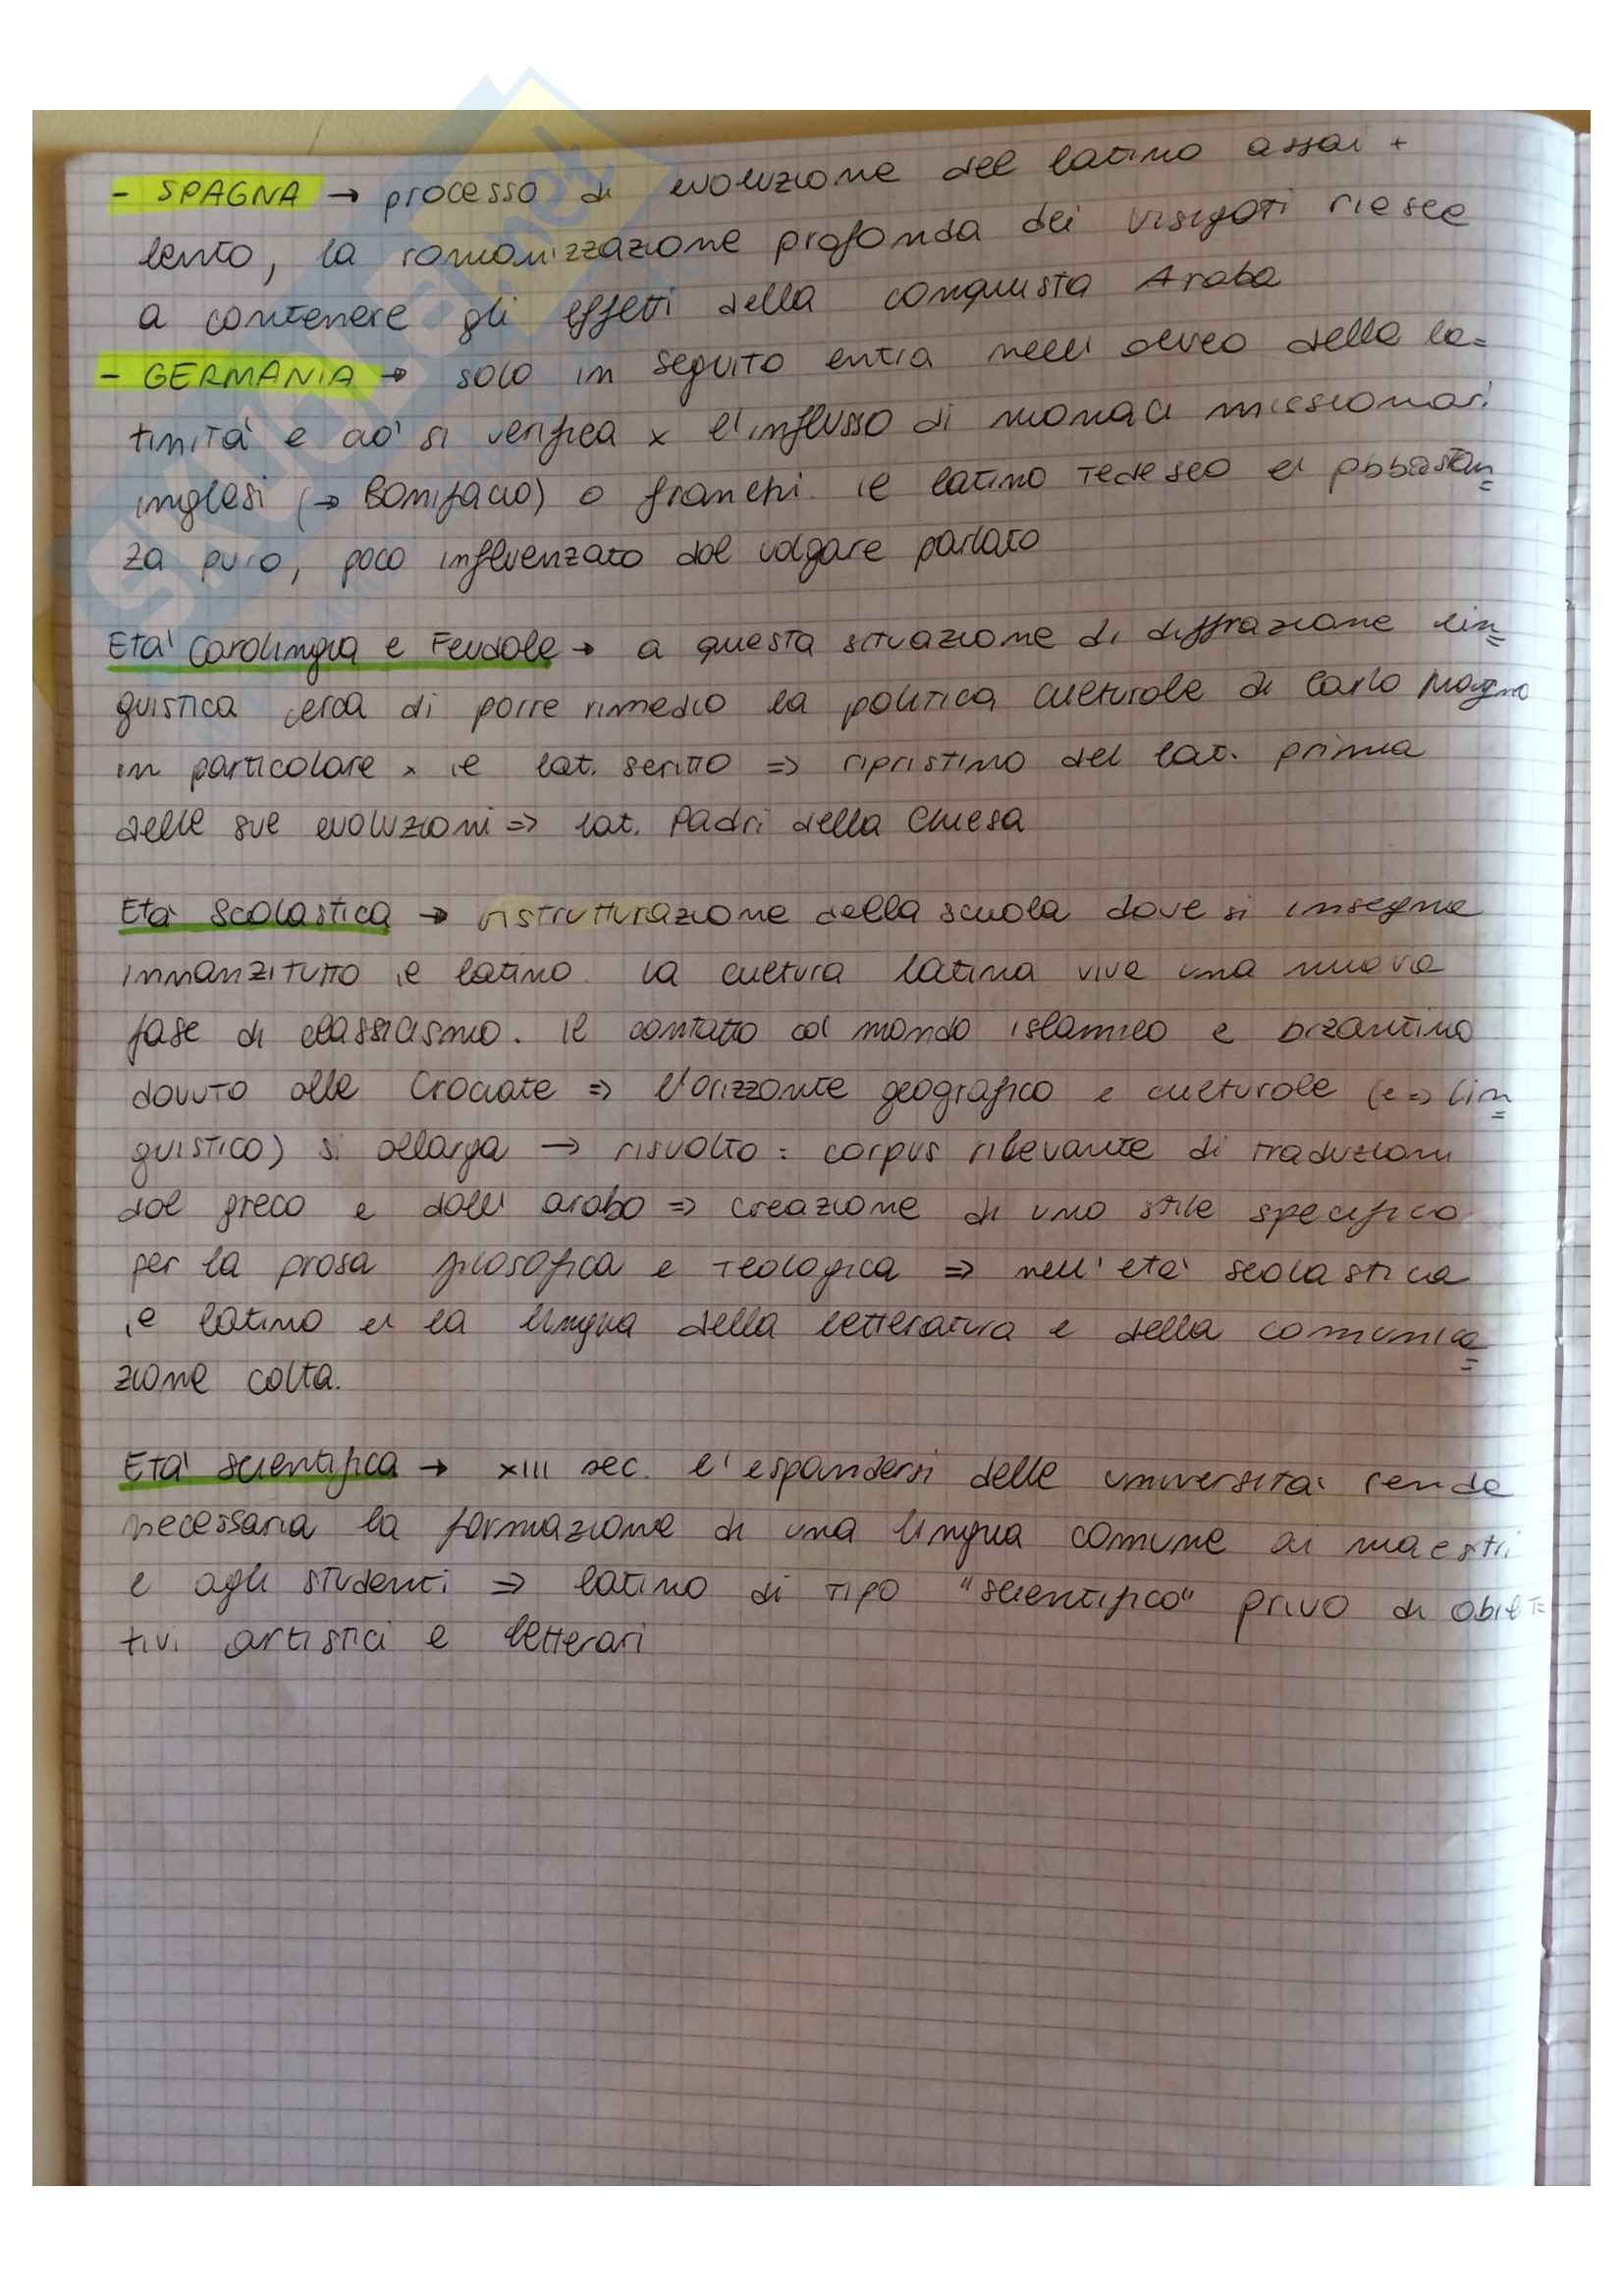 - SPAGNA → processo di evoluzione del latino assai +
lento, la romanizzazione profonda dei visigoti riesce
a contenere gli effetti della conquista Araba
- GERMANIA → solo in seguito entra nell'alveo della la=
tinità e ciò si verifica x l'influsso di monaci missionari
inglesi (→ Bonifacio) o franchi. il latino tedesco è abbastan=
za puro, poco influenzato dal volgare parlato
Età Carolingia e Feudale → a questa situazione di diffrazione lin=
guistica cerca di porre rimedio la politica culturale di Carlo Magno
in particolare x il lat. scritto => ripristino del lat. prima
delle sue evoluzioni => lat. Padri della Chiesa
Età Scolastica → ristrutturazione della scuola dove si insegna
innanzitutto il latino. La cultura latina vive una nuova
fase di classicismo. Il contatto col mondo islamico e bizantino
dovuto alle Crociate => l'orizzonte geografico e culturale (e => lin=
guistico) si allarga → risvolto: corpus rilevante di traduzioni
dal greco e dall'arabo => creazione di uno stile specifico
per la prosa filosofica e teologica => nell'età scolastica
il latino è la lingua della letteratura e della comunica=
zione colta.
Età scientifica → XIII sec. l'espandersi delle università rende
necessaria la formazione di una lingua comune ai maestri
e agli studenti => latino di tipo "scientifico" privo di obiet=
tivi artistici e letterari